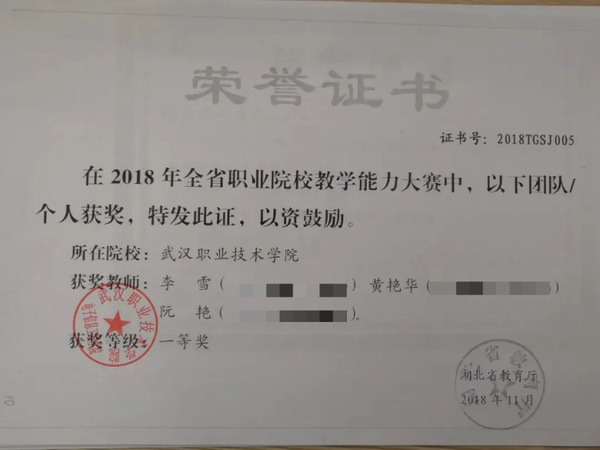 荣誉证书
证书号：2018TGSJ005
在 2018 年全省职业院校教学能力大赛中，以下团队/
个人获奖，特发此证，以资鼓励。
所在院校：武汉职业技术学院
获奖教师：李 雪（ ）黄艳华（
阮 艳（ ）。
获奖等级：一等奖
湖北省教育厅
2018 年 11 月